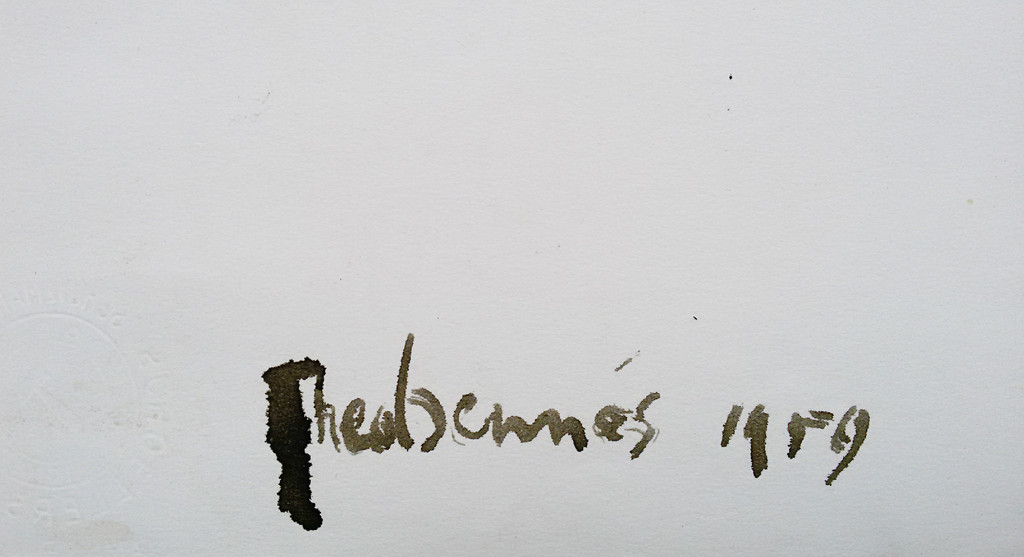 Theo Bennés 1959